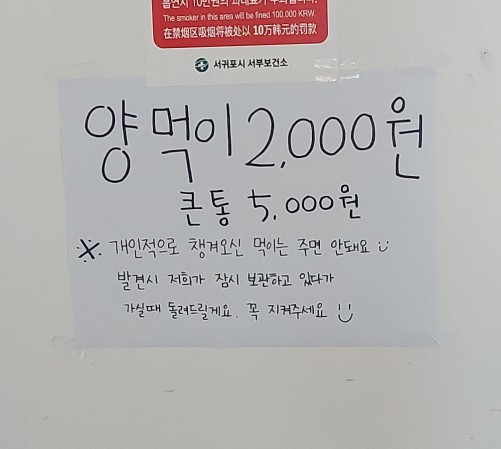 The smoker in this area will be fined 100.000 KRW.
在禁烟区吸烟将被处以 10万韩元的罚款
서귀포시 서부보건소
양 먹이 2,000원
큰통 5,000원
※. 개인적으로 챙겨오신 먹이는 주면 안돼요
발견시 저희가 잠시 보관하고 있다가
가실때 돌려드릴게요. 꼭 지켜주세요